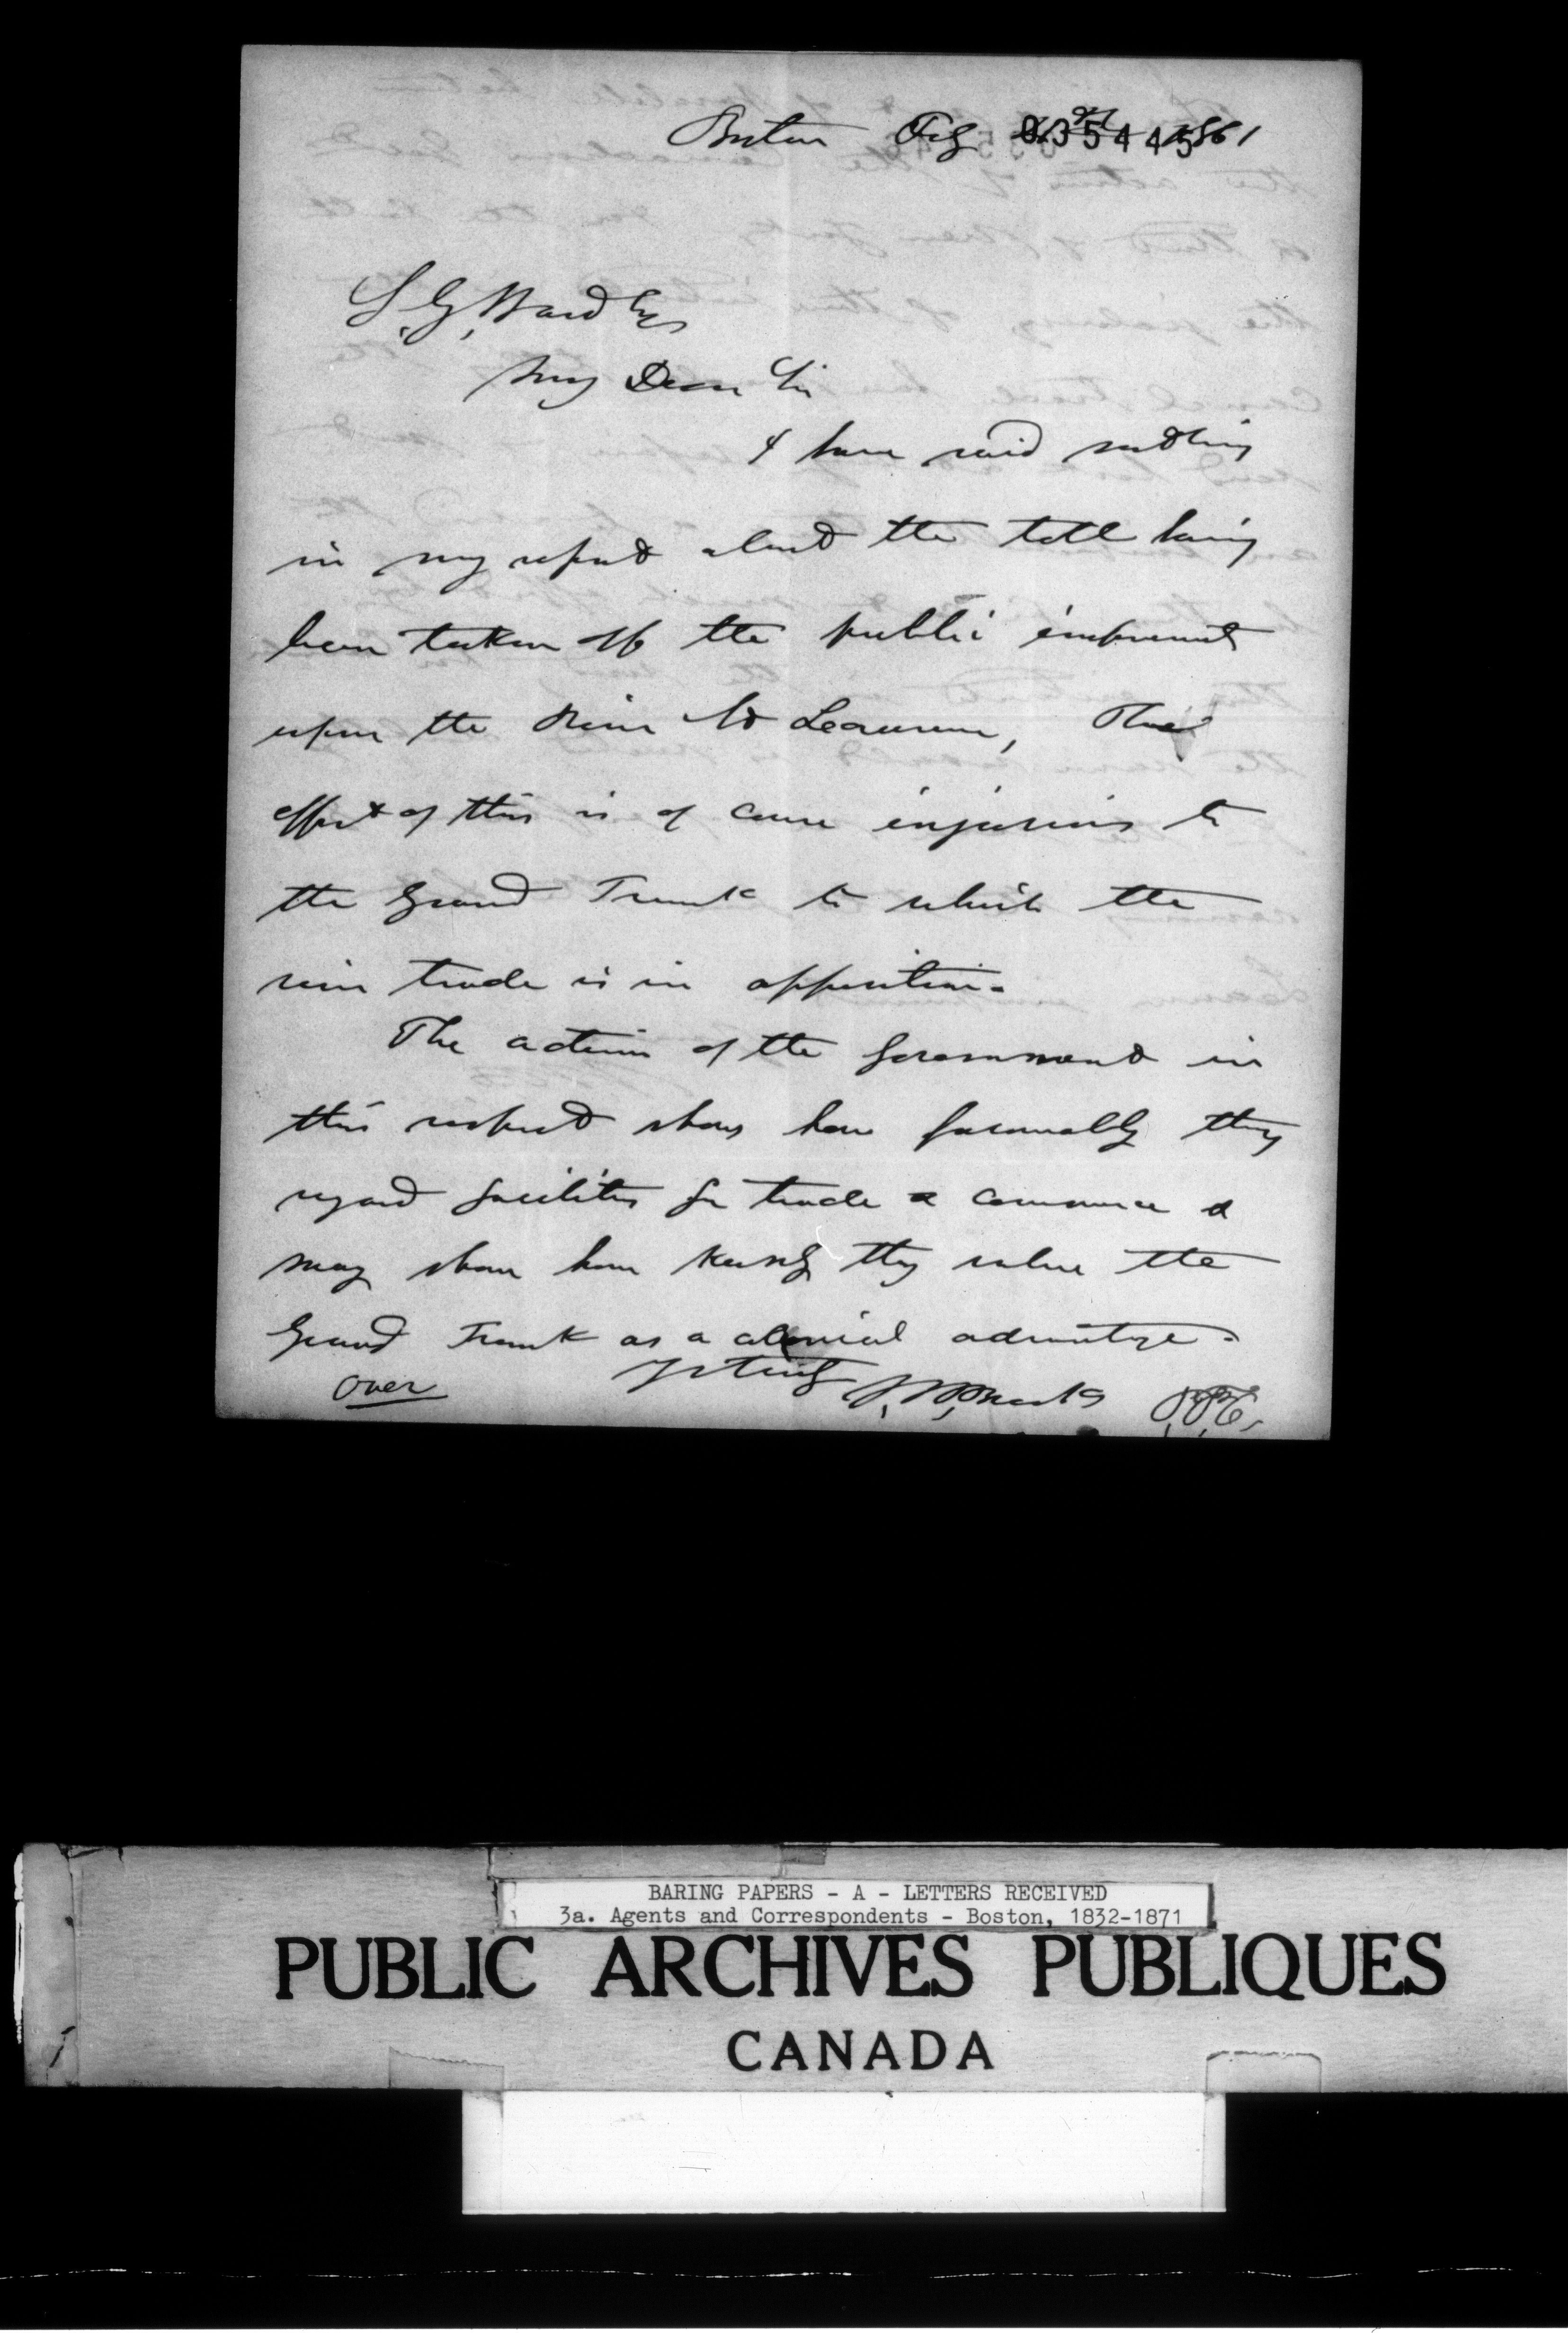 Boston Feby 035445 1861
S. G. Ward Esq
My Dear Sir
I have said nothing
in my report about the toll having
been taken off the public improvements
upon the River St Lawrence, The
effect of this is of course injurious to
the Grand Trunk to which the
river trade is in opposition.
The action of the Government in
this respect shows how favourably they
regard facilities for trade & commerce &
may show how keenly they value the
Grand Trunk as a colonial advantage.
Yrs truly
over
BARING PAPERS - A - LETTERS RECEIVED
3a. Agents and Correspondents - Boston, 1832-1871
PUBLIC ARCHIVES PUBLIQUES
CANADA